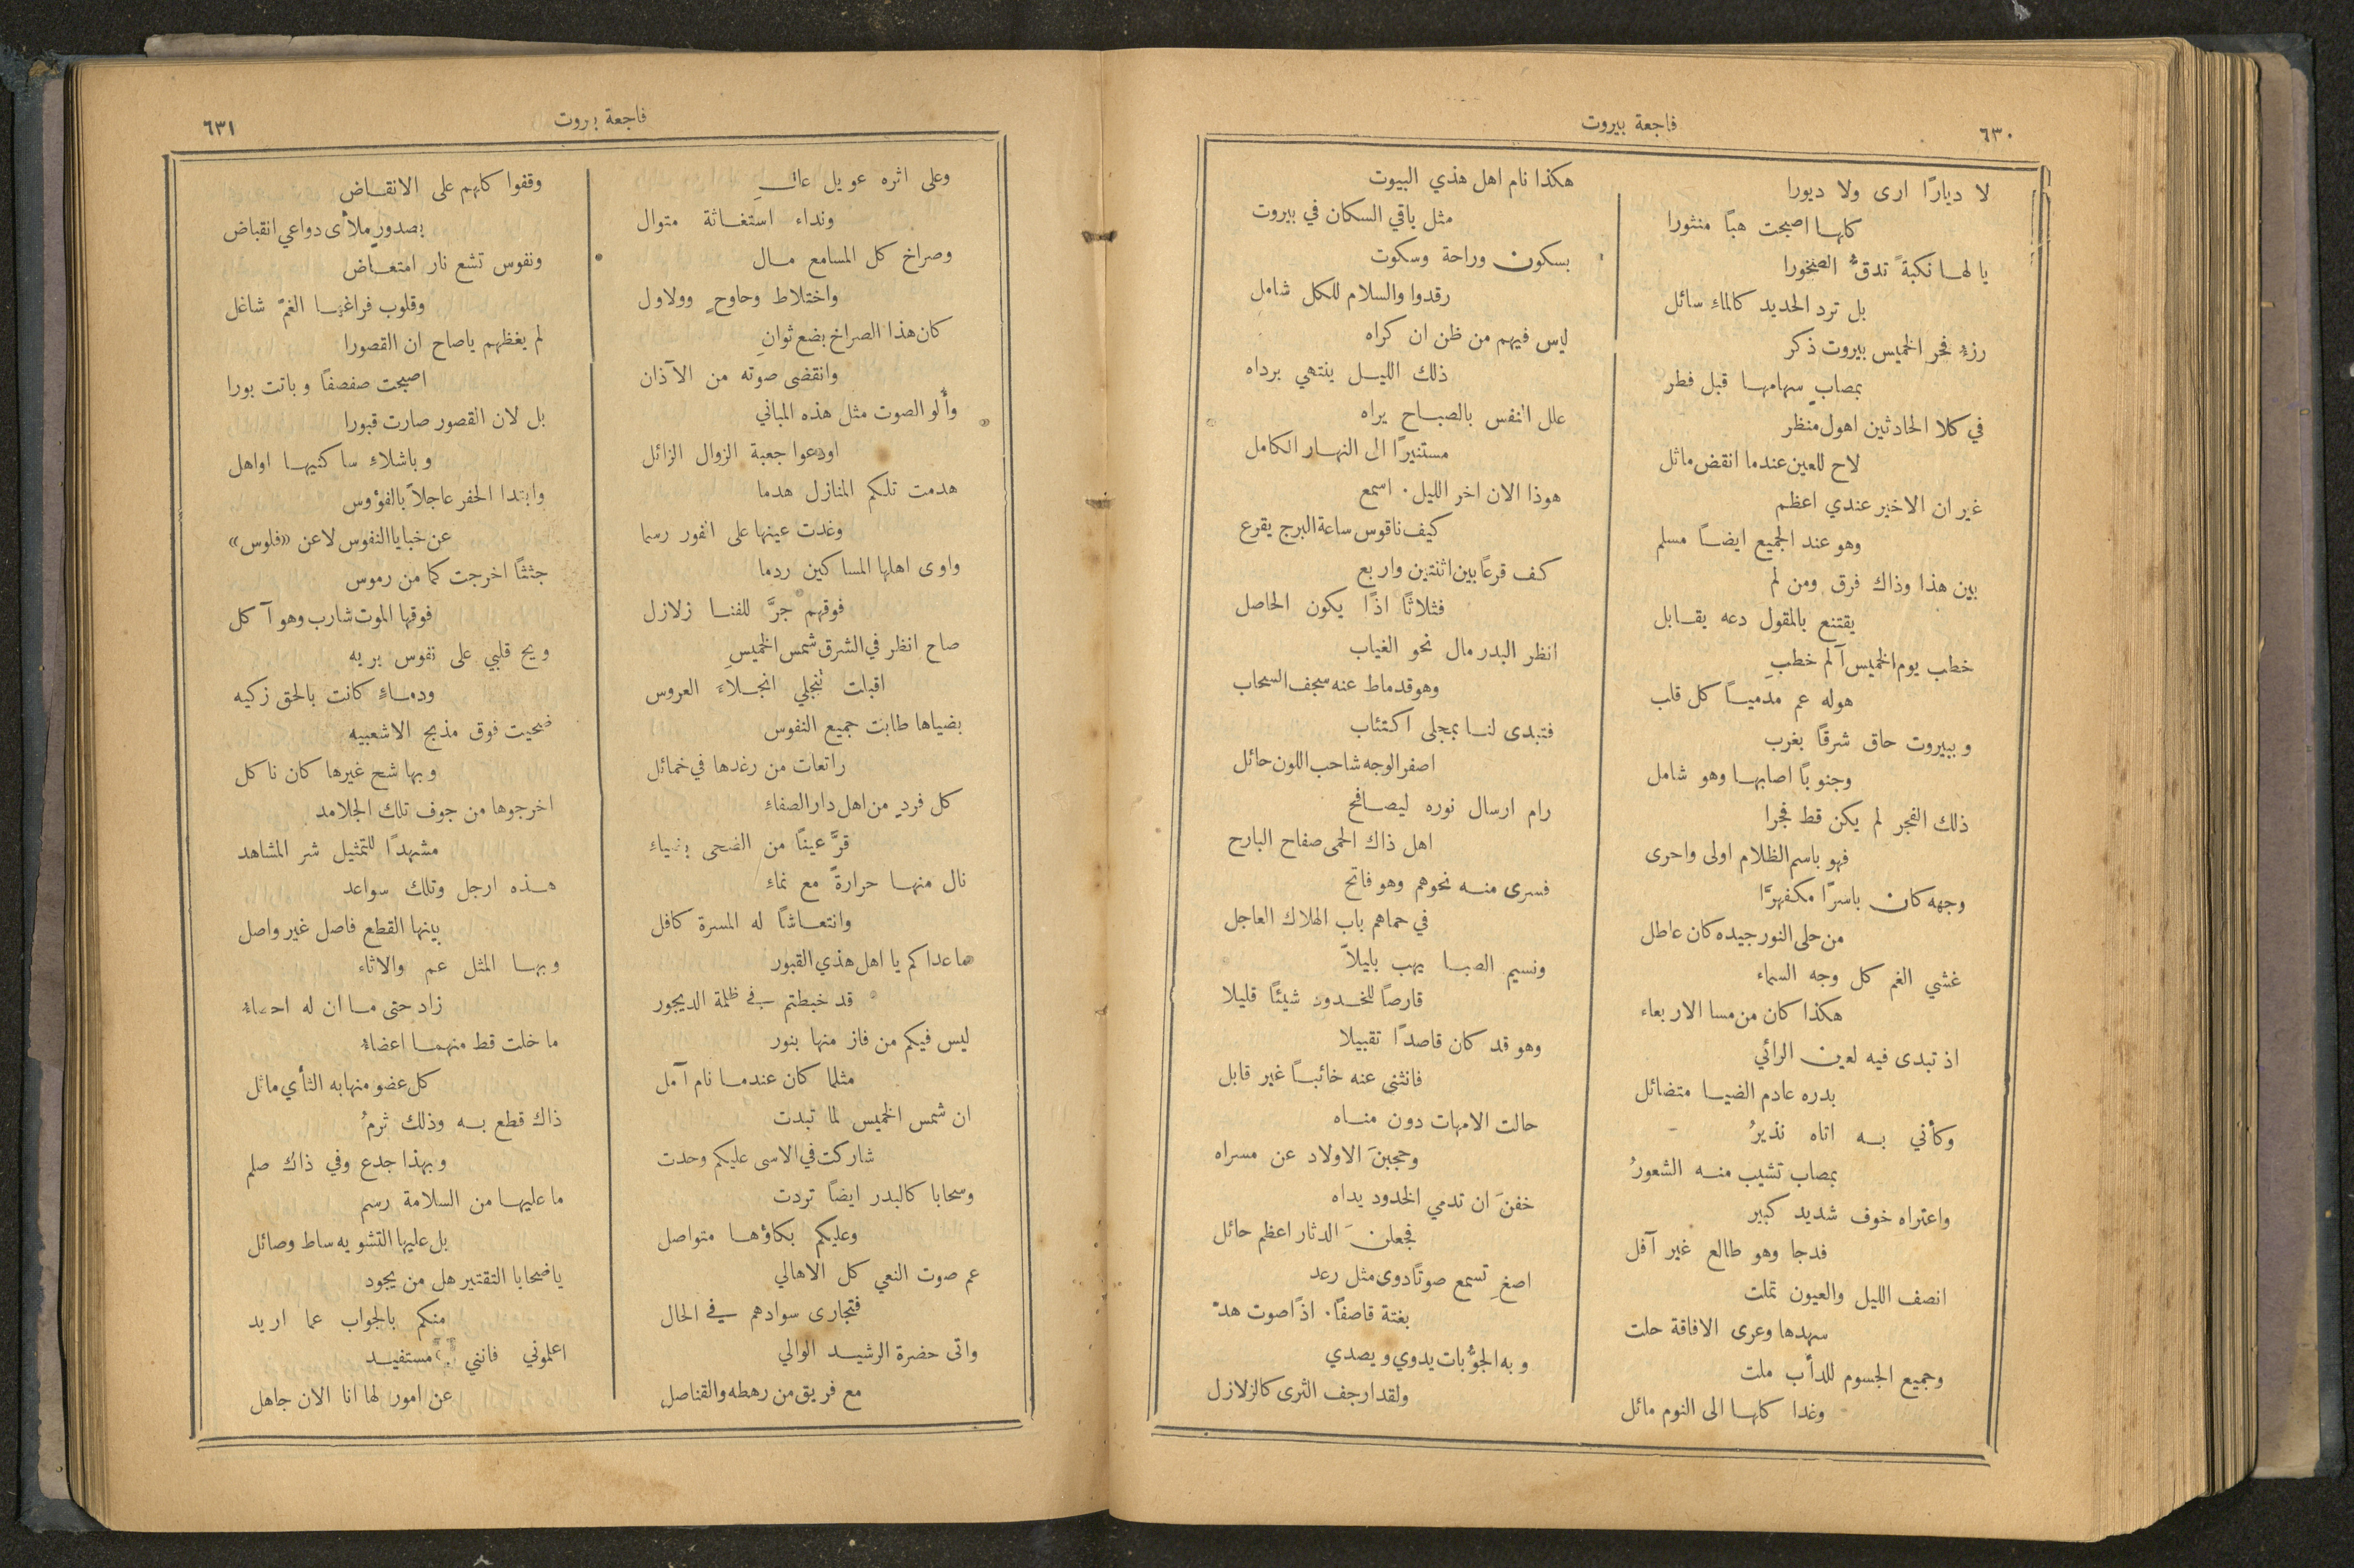 ٦٣٠
فاجعة بيروت
لا ديارًا ارى ولا ديورا
كلها اصبحت هبًا منثورا
يا لها نكبةً تدقُّ الصخورا
بل ترد الحديد كالماء سائل
رزء فجر الخميس بيروت ذكر
بمصابٍ سهامها قبل فطر
في كلا الحادثين اهول منظر
لاح للعين عندما انقض ماثل
غير ان الاخير عندي اعظم
وهو عند الجميع ايضًا مسلم
بين هذا وذاك فرق ومن لم
يقتنع بالمقول دعه يقابل
خطب يوم الخميس آلم خطبِ
هوله عم مدميًا كل قلب
وببيروت حاق شرقًا بغرب
وجنوبًا اصابها وهو شامل
ذلك الفجر لم يكن قط فجرا
فهو باسم الظلام اولى واحرى
وجهه كان باسرًا مكفهرًّا
من حلى النور جيده كان عاطل
غشي الغم كل وجه السماء
هكذا كان من مسا الاربعاء
اذ تبدى فيه لعين الرائي
بدره عادم الضيا متضائل
وكأني به اتاه نذيرُ
بمصاب تشيب منه الشعورُ
واعتراه خوف شديد كبير
فدجا وهو طالع غير آفل
انصف الليل والعيون تملت
سهدها وعرى الافاقة حلت
وجميع الجسوم للدأب ملت
وغدا كلها الى النوم مائل
هكذا نام اهل هذي البيوت
مثل باقي السكان في بيروت
بسكون وراحة وسكوت
رقدوا والسلام للكل شامل
ليس فيهم من ظن ان كراه
ذلك الليل ينتهي برداه
علل النفس بالصباح يراه
مستنيرًا الى النهار الكامل
هوذا الان اخر الليل . اسمع
كيف ناقوس ساعة البرج يقرع
كف قرعًا بين اثنتين واربع
فثلاثًا اذًا يكون الحاصل
انظر البدر مال نحو الغياب
وهو قد ماط عنه سجف السحاب
فتبدى لنا بمجلى اكتئاب
اصفر الوجه شاحب اللون حائل
رام ارسال نوره ليصافح
اهل ذاك الحمى صفاح البارح
فسرى منه نحوهم وهو فاتح
في حماهم باب الهلاك العاجل
ونسيم الصبا يهب بليلاً
قارصًا للخدود شيئًا قليلا
وهو قد كان قاصدًا تقبيلا
فانثنى عنه خائبًا غير قابل
حالت الامهات دون مناه
وحجبنَ الاولاد عن مسراه
خفنَ ان تدمي الخدود يداه
فجعلنَ الدثار اعظم حائل
اصغِ تسمع صوتًا دوى مثل رعد
بغتة قاصفًا . اذًا صوت هد
وبه الجوُّ بات يدوي ويصدي
ولقد ارجف الثرى كالزلازل
فاجعة بيروت
٦٣١
وعلى اثره عويل عالِ
ونداء استغاثة متوال
وصراخ كل المسامع مال
واختلاط وحاوحٍ وولاول
كان هذا الصراخ بضع ثوانِ
وانقضى صوته من الآذان
وأُلو الصوت مثل هذه المباني
اودعوا جعبة الزوال الزائل
هدمت تلكم المنازل هدما
وغدت عينها على الفور رسما
واوى اهلها المساكين ردما
فوقهم جرَّ للفنا زلازل
صاح انظر في الشرق شمس الخميسِ
اقبلت تنجلي انجلاء العروس
بضياها طابت جميع النفوس
راتعات من رغدها في خمائل
كل فردٍ من اهل دار الصفاء
قرَّ عينًا من الضحى بضياء
نال منها حرارةً مع نماء
وانتعاشًا له المسرة كافل
ما عداكم يا اهل هذي القبور
قد خبطتم في ظلمة الديجور
ليس فيكم من فاز منها بنور
مثلما كان عندما نام آمل
ان شمس الخميس لما تبدت
شاركت في الاسى عليكم وحدت
وسحابا كالبدر ايضًا تردت
وعليكم بكاؤها متواصل
عم صوت النعي كل الاهالي
فتجارى سوادهم في الحال
واتى حضرة الرشيد الوالي
مع فريق من رهطه والقناصل
وقفوا كلهم على الانقاض
بصدورٍ ملأى دواعي انقباض
ونفوس تشع نار امتعاض
وقلوب فراغها الغمّ شاغل
لم يغظهم ياصاح ان القصورا
اصبحت صفصفًا وباتت بورا
بل لان القصور صارت قبورا
وباشلاء ساكنيها اواهل
وابتدا الحفر عاجلاً بالفؤوس
عن خبايا النفوس لا عن «فلوس»
جثثًا اخرجت كما من رموس
فوقها الموت شارب وهو آكل
ويح قلبي على نفوس بريه
ودماءٍ كانت بالحق زكيه
ضحيت فوق مذبح الاشعبيه
وبها شح غيرها كان ناكل
اخرجوها من جوف تلك الجلامد
مشهدًا للتمثيل شر المشاهد
هذه ارجل وتلك سواعد
بينها القطع فاصل غير واصل
وبها المثل عم والاثاء
زاد حتى ما ان له احصاء
ما خلت قط منهما اعضاء
كل عضو منها به الثأي ماثل
ذاك قطع به وذلك ثرمُ
وبهذا جدع وفي ذاك صلم
ما عليها من السلامة رسم
بل عليها التشويه ساط وصائل
ياضحايا التقتير هل من يجود
منكم بالجواب عما اريد
اعلموني فانني مستفيد
عن امور لها انا الان جاهل